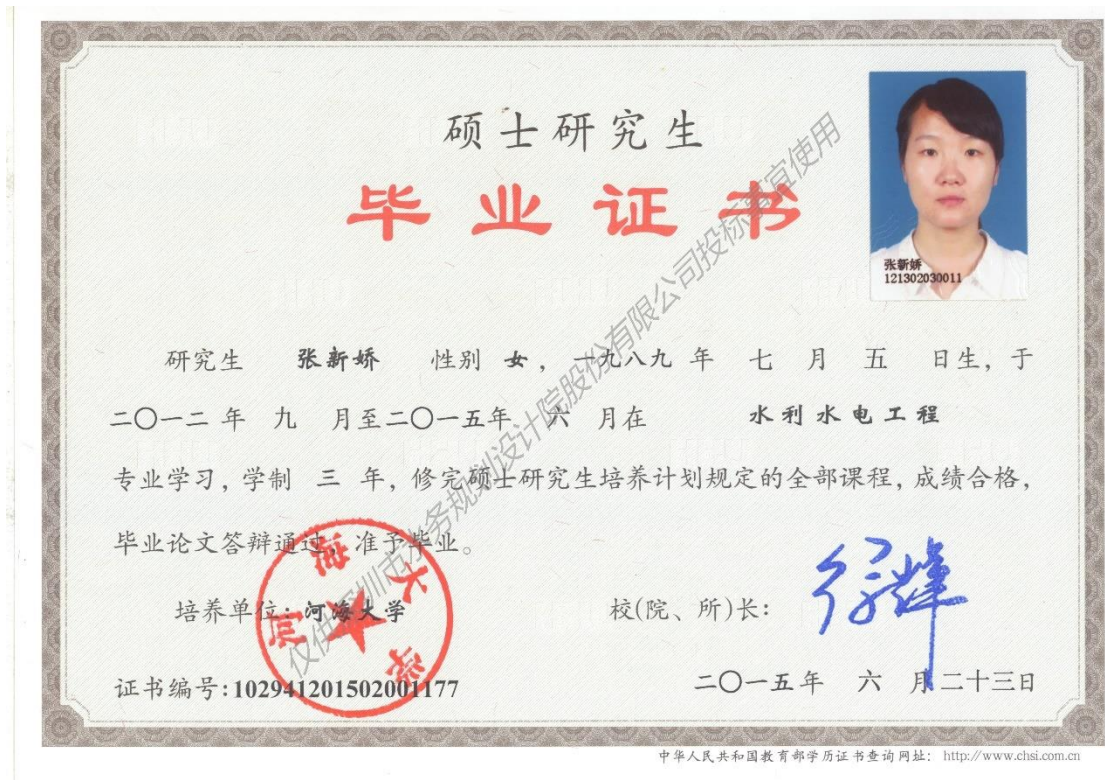 硕士研究生
毕业证书
张新娇
121302030011
研究生 张新娇 性别 女，一九八九 年 七 月 五 日生，于
二〇一二 年 九 月至二〇一五年 六 月在 水利水电工程
专业学习，学制 三 年，修完硕士研究生培养计划规定的全部课程，成绩合格，
毕业论文答辩通过，准予毕业。
培养单位：河海大学 校(院、所)长：
河海大学
证书编号：102941201502001177 二〇一五年 六 月二十三日
仅供深圳市水务规划设计院股份有限公司投标事宜使用
中华人民共和国教育部学历证书查询网址： http://www.chsi.com.cn